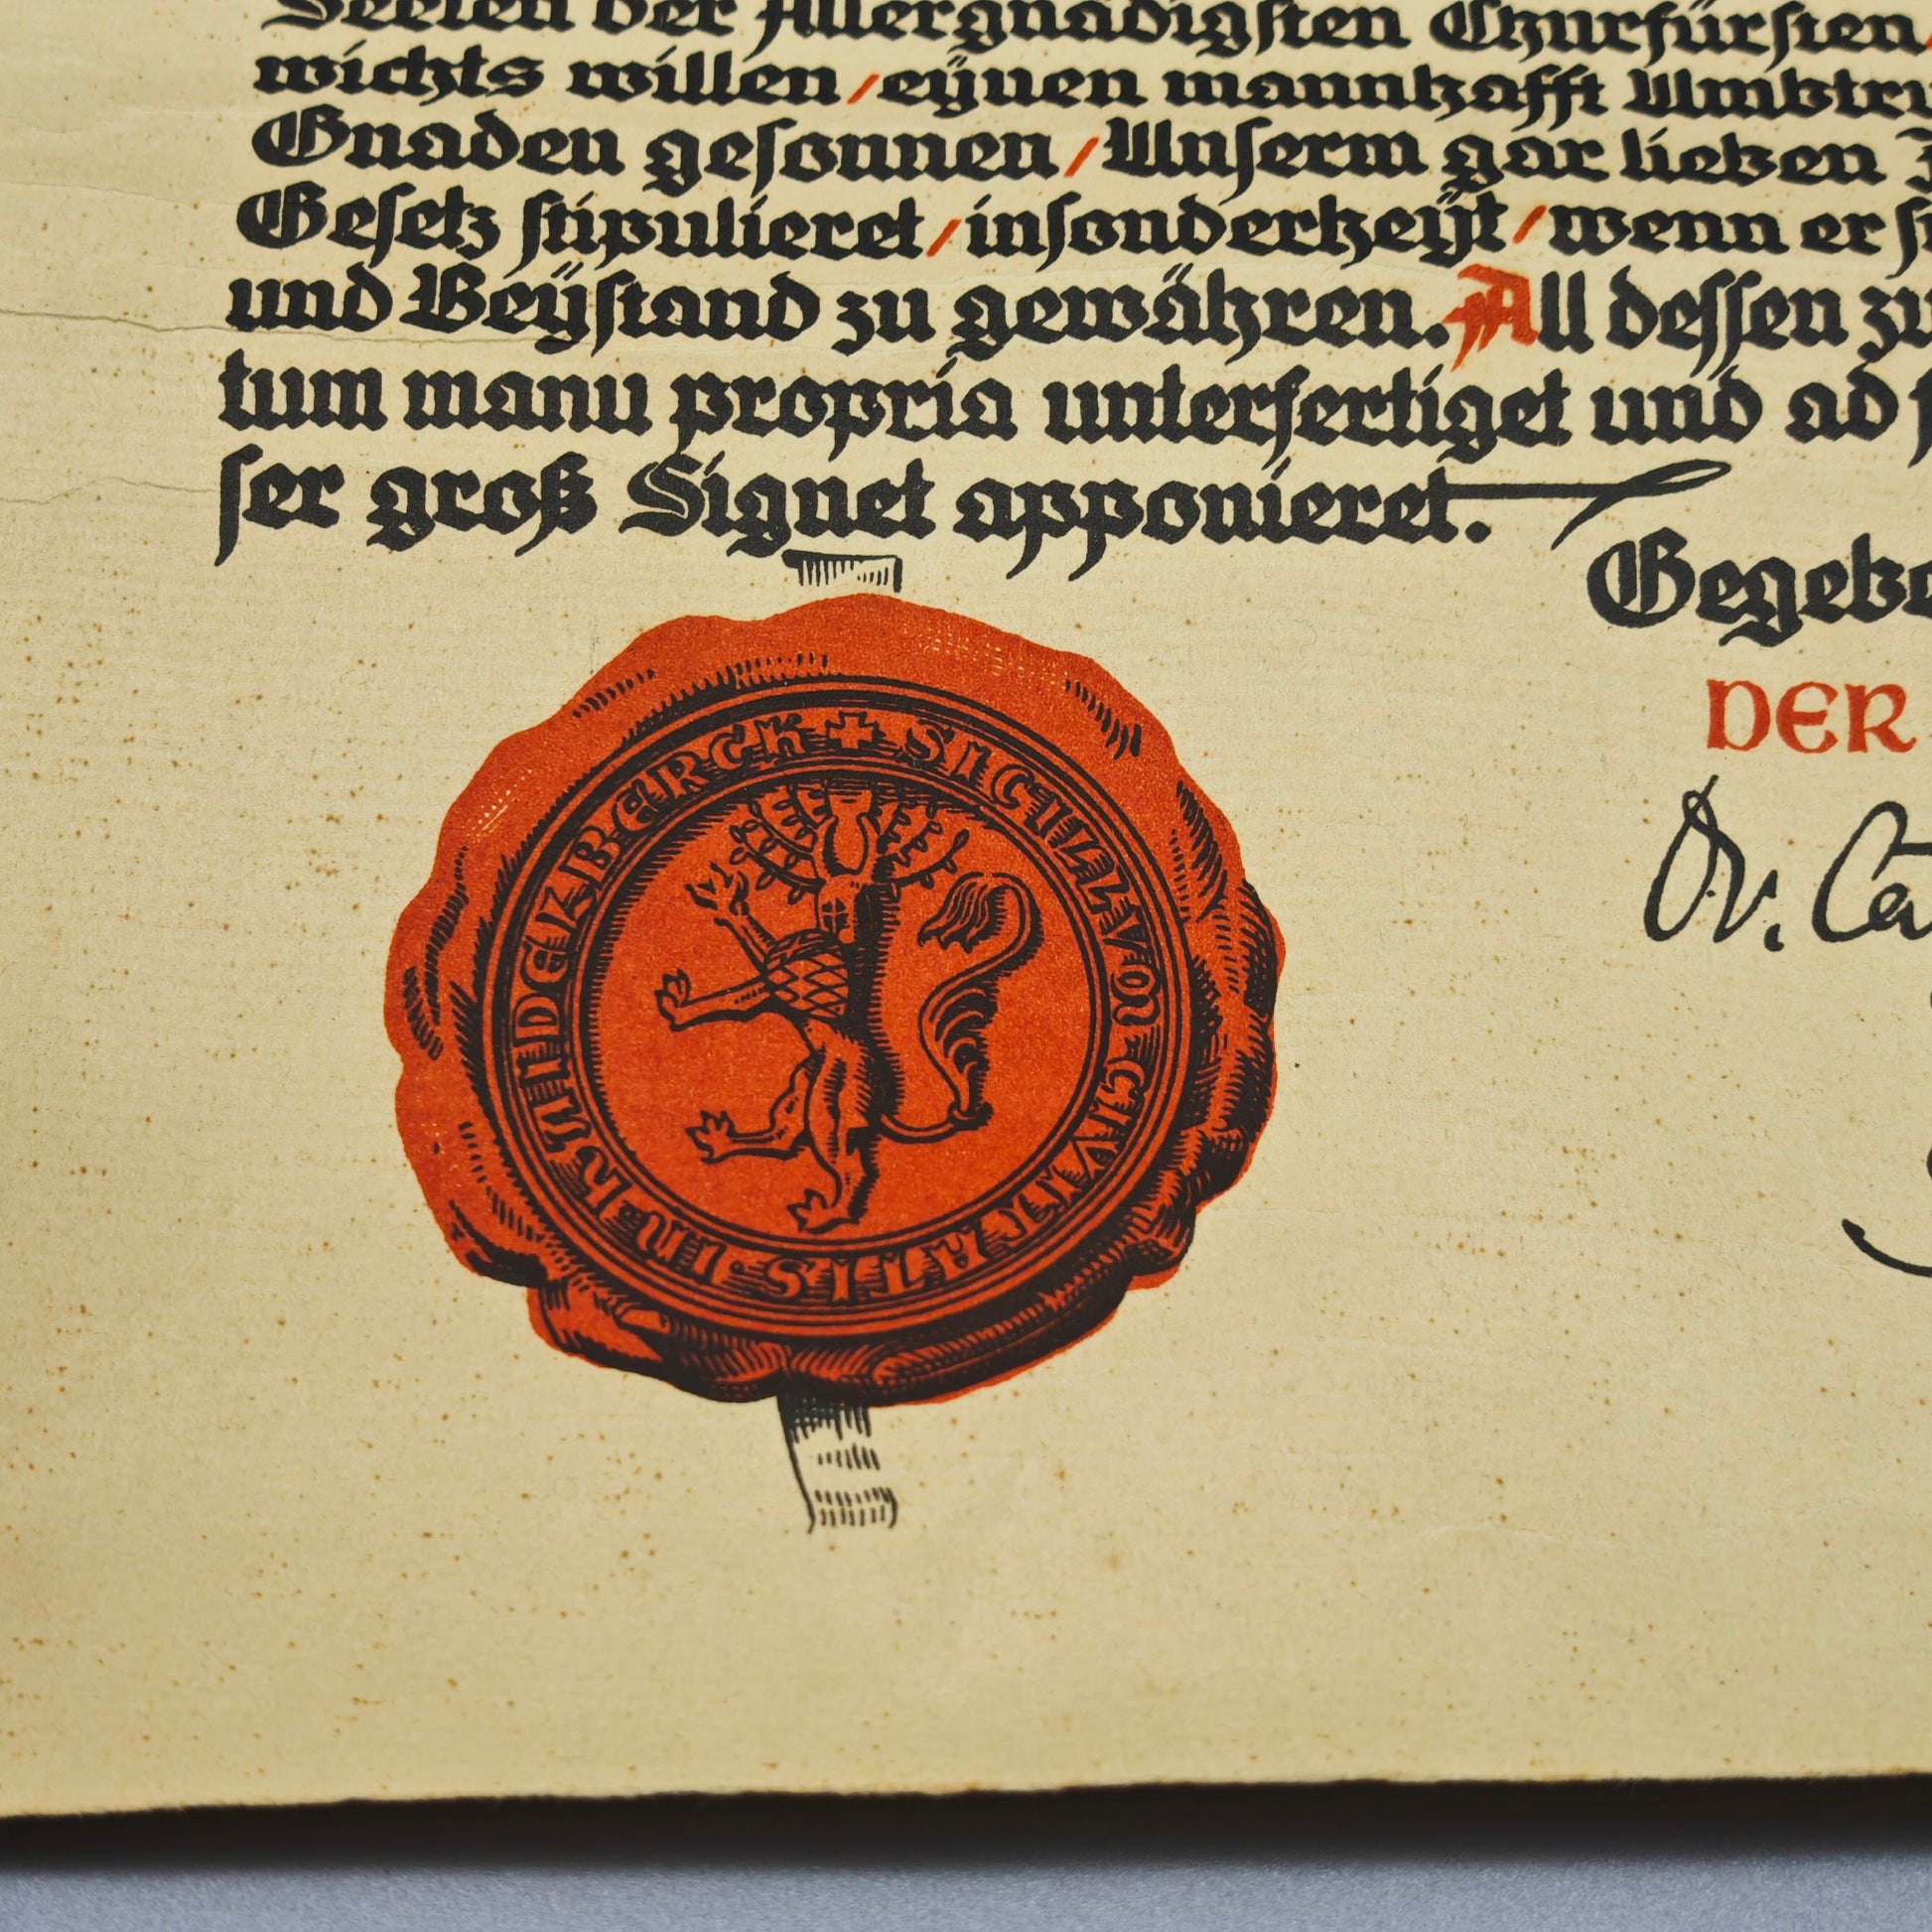 Seelen der Allergnädigsten Churfürsten/
wichts willen/eÿnen mannhafft Umbtru
Gnaden gesonnen/Unserm gar lieben
Gesetz stipulieret/insonderheÿt/wenn er
und Beÿstand zu gewähren. All dessen zu
tum manu propria unterfertiget und ad
ser groß Signet apponieret.
Gegebe
DER
Dr. Ca
✚ SIGILL VON CIVITATIS IN KUNDERBERCK